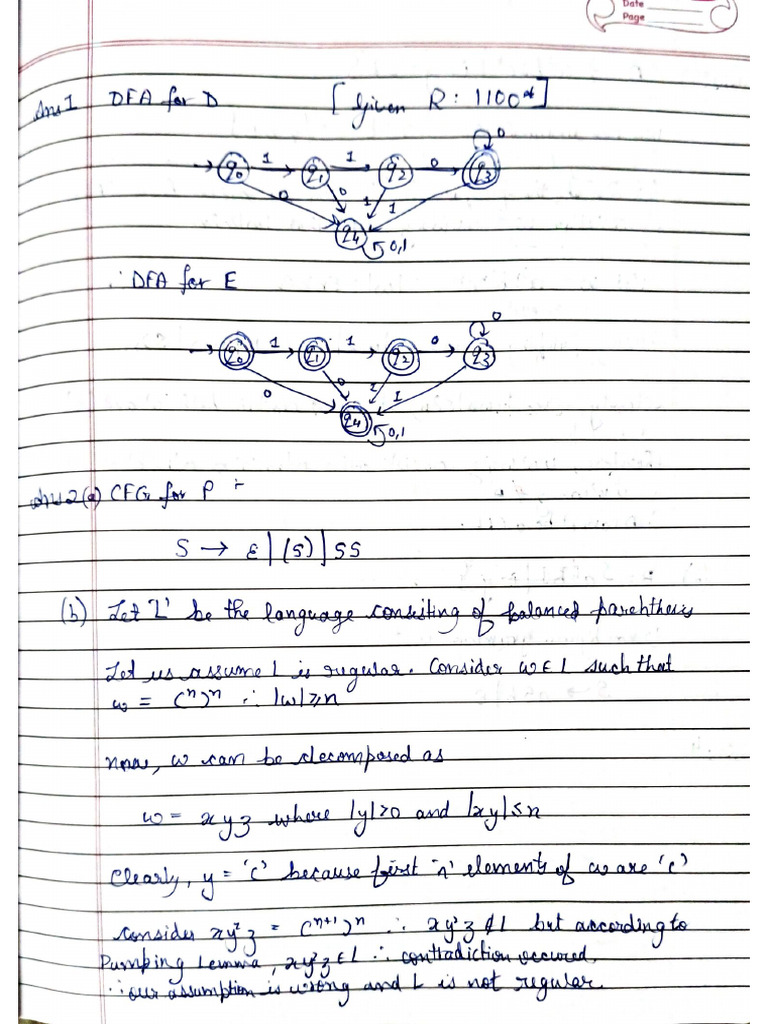 Date
Page
Ans 1 DFA for D [Given R: 1100*]
0
1 1 0
q0 q1 q2 q3
0 0 1 1
q4
0,1
∴ DFA for E
0
1 1 0
q0 q1 q2 q3
0 0 1 1
q4
0,1
Ans 2(a) CFG for P :-
S → ε | (S) | SS
(b) Let 'L' be the language consisting of balanced parenthesis
Let us assume L is regular. Consider w ∈ L such that
w = (ⁿ)ⁿ ∴ |w| ≥ n
now, w can be decomposed as
w = xyz where |y|>0 and |xy| ≤ n
Clearly, y = '(' because first 'n' elements of w are '('
Consider xy²z = (ⁿ⁺¹)ⁿ ∴ xy²z ∉ L but according to
Pumping Lemma, xy²z ∈ L ∴ contradiction occured.
∴ our assumption is wrong and L is not regular.